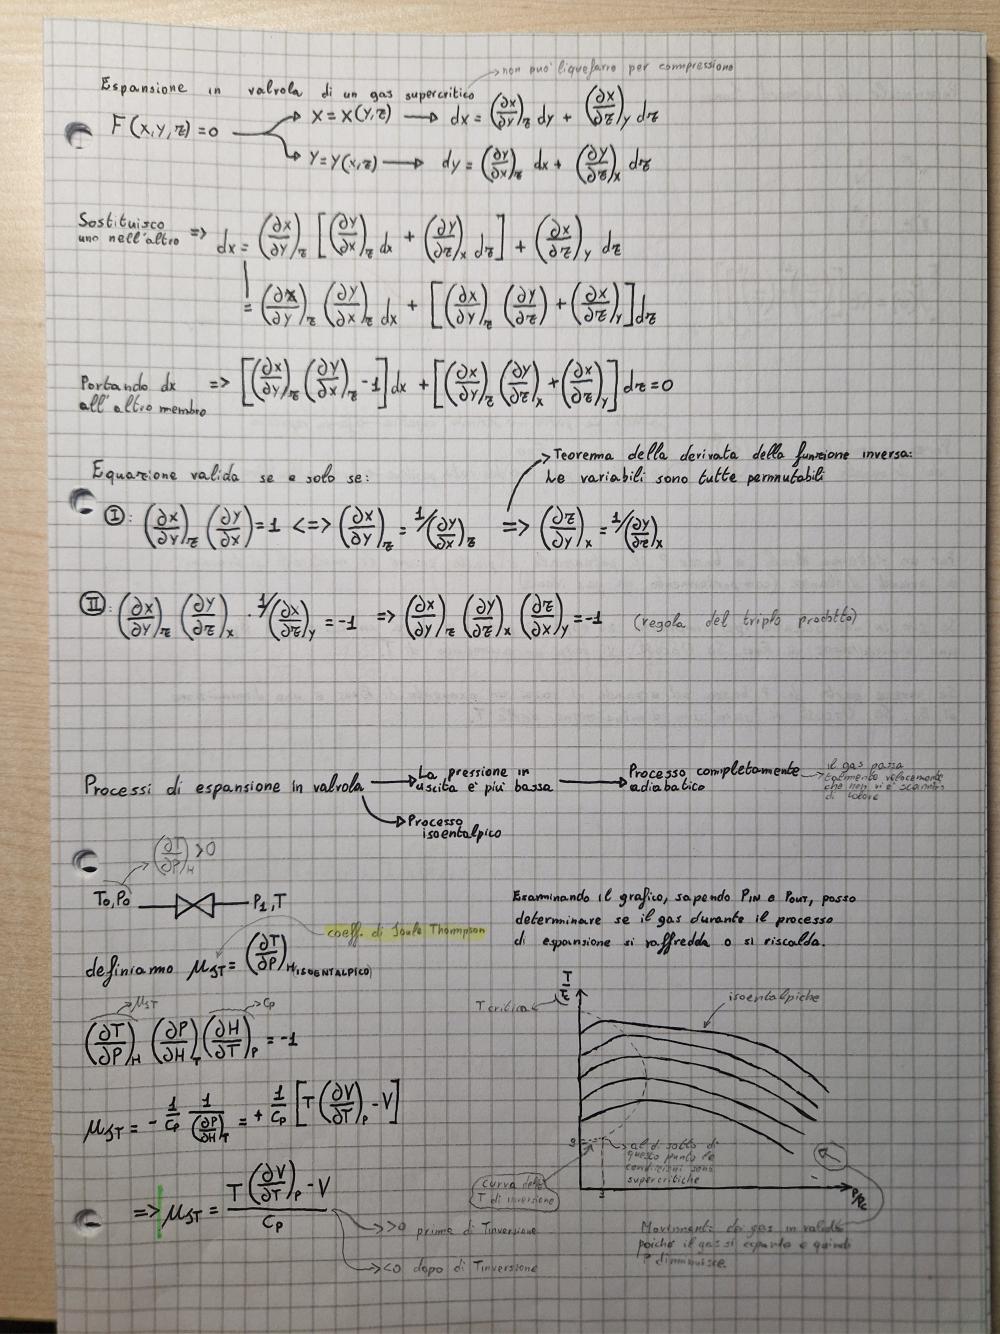 non può liquefarsi per compressione
Espansione in valvola di un gas supercritico
F(x,y,z)=0 → x = x(y,z) → dx = (∂x/∂y)_z dy + (∂x/∂z)_y dz
→ y = y(x,z) → dy = (∂y/∂x)_z dx + (∂y/∂z)_x dz
Sostituisco
uno nell'altro => dx = (∂x/∂y)_z [(∂y/∂x)_z dx + (∂y/∂z)_x dz] + (∂x/∂z)_y dz
= (∂x/∂y)_z (∂y/∂x)_z dx + [(∂x/∂y)_z (∂y/∂z) + (∂x/∂z)_y] dz
Portando dx
all'altro membro => [(∂x/∂y)_z (∂y/∂x)_z - 1] dx + [(∂x/∂y)_z (∂y/∂z)_x + (∂x/∂z)_y] dz = 0
Teorema della derivata della funzione inversa:
Le variabili sono tutte permutabili
Equazione valida se e solo se:
I: (∂x/∂y)_z (∂y/∂x) = 1 <=> (∂x/∂y)_z = 1/(∂y/∂x)_z => (∂z/∂y)_x = 1/(∂y/∂z)_x
II: (∂x/∂y)_z (∂y/∂z)_x · 1/(∂x/∂z)_y = -1 => (∂x/∂y)_z (∂y/∂z)_x (∂z/∂x)_y = -1 (regola del triplo prodotto)
Processi di espansione in valvola → La pressione in
uscita è più bassa → Processo completamente
adiabatico → il gas passa
talmente velocemente
che non vi è scambio
di calore
→ Processo
isoentalpico
(∂T/∂P)_H > 0
T₀,P₀ P₁,T
coeff. di Joule Thompson
definiamo μ_JT = (∂T/∂P)_H (ISOENTALPICO)
μ_JT Cp
(∂T/∂P)_H (∂P/∂H)_T (∂H/∂T)_P = -1
μ_JT = - 1/Cp 1/(∂P/∂H)_T = + 1/Cp [T(∂V/∂T)_P - V]
=> μ_JT = (T(∂V/∂T)_P - V)/Cp
>0 prima di Tinversione
<0 dopo di Tinversione
Esaminando il grafico, sapendo P_IN e P_OUT, posso
determinare se il gas durante il processo
di espansione si raffredda o si riscalda.
T critica ← T/Tc
isoentalpiche
al di sotto di
questo punto le
condizioni sono
supercritiche
curva della
T di inversione
P/Pc
Movimenti dei gas in valvola
poiché il gas si espande e quindi
P diminuisce.